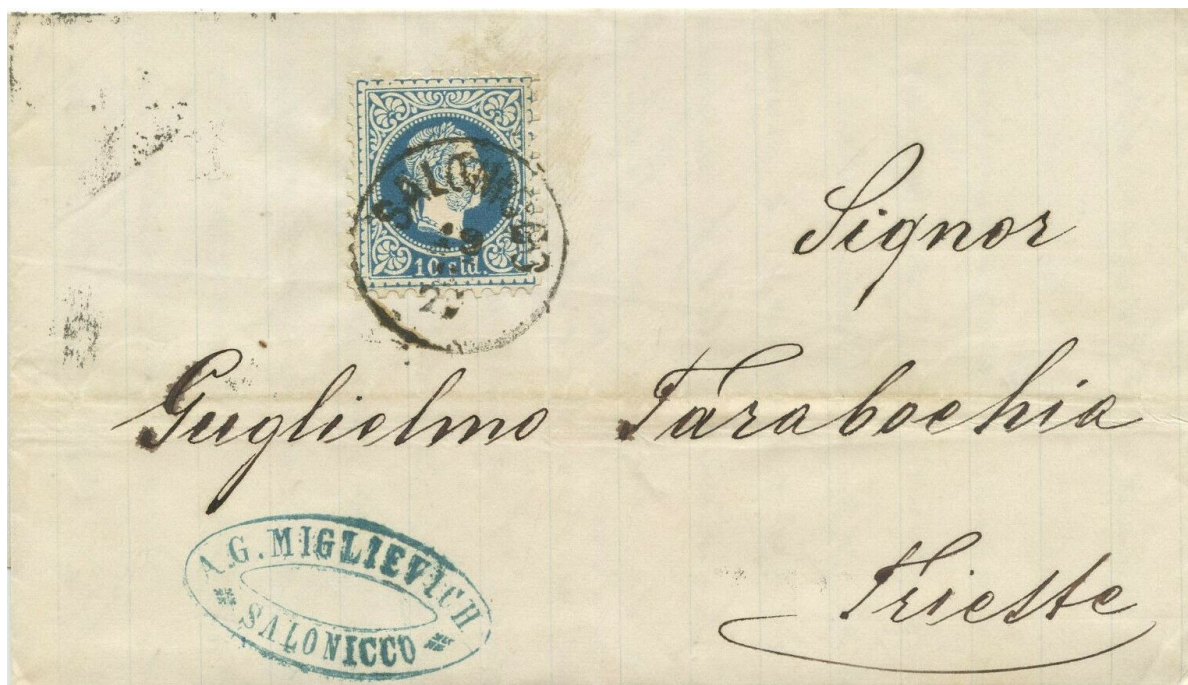 10 sld.
SALONICCO
19
Signor
Guglielmo Tarabochia
Trieste
A. G. MIGLIEVICH
SALONICCO